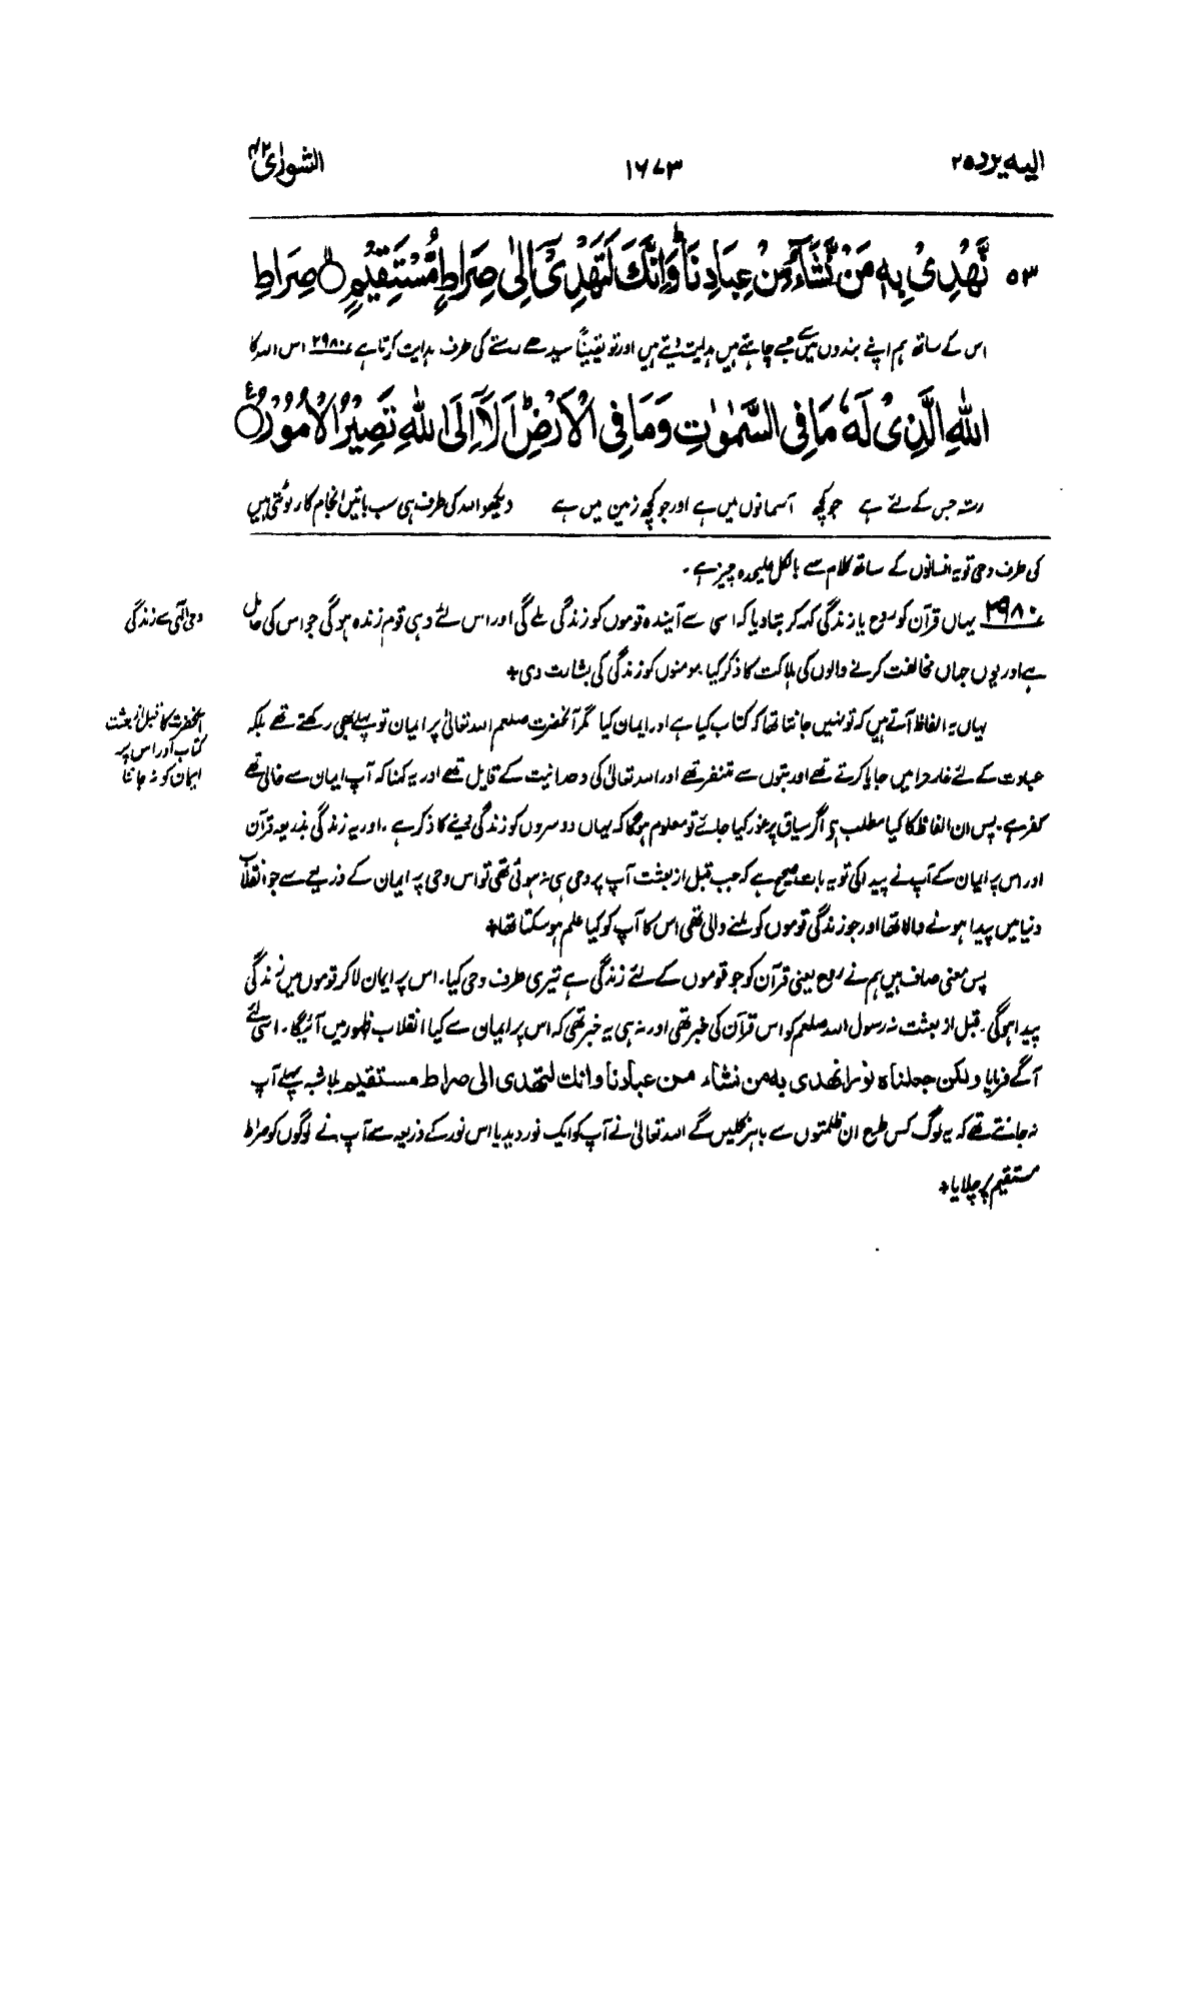 الیه یرد ۲۵
۱۶۷۳
الشورٰی ۴۲
۵۳ نَّهْدِیْ بِهٖ مَنْ نَّشَآءُ مِنْ عِبَادِنَا ؕ وَاِنَّكَ لَتَهْدِیْۤ اِلٰی صِرَاطٍ مُّسْتَقِیْمٍ ۙ صِرَاطِ
اس کے ساتھ ہم اپنے بندوں میں سے جسے چاہتے ہیں ہدایت دیتے ہیں اور تو یقیناً سیدھے رستے کی طرف ہدایت کرتا ہے ۲۹۸۰ اس اللہ کا
اللّٰهِ الَّذِیْ لَهٗ مَا فِی السَّمٰوٰتِ وَمَا فِی الْاَرْضِ ؕ اَلَاۤ اِلَی اللّٰهِ تَصِیْرُ الْاُمُوْرُ ۠
رستہ جس کے لئے ہے جو کچھ آسمانوں میں ہے اور جو کچھ زمین میں ہے دیکھو اللہ کی طرف ہی سب باتیں انجام کار لوٹتی ہیں
کی طرف وحی تو یہ انسانوں کے ساتھ کلام سے بالکل علیحدہ چیز ہے۔
۲۹۸۰ یہاں قرآن کو روح یا زندگی کہہ کر بتا دیا کہ اسی سے آیندہ قوموں کو زندگی ملے گی اور اس لئے وہی قوم زندہ ہو گی جو اس کی حامل
ہے اور یوں جہاں مخالفت کرنے والوں کی ہلاکت کا ذکر کیا مومنوں کو زندگی کی بشارت دی+
وحی الٰہی سے زندگی
یہاں یہ الفاظ آتے ہیں کہ تو نہیں جانتا تھا کہ کتاب کیا ہے اور ایمان کیا مگر آنحضرت صلعم اللہ تعالیٰ پر ایمان تو پہلے بھی رکھتے تھے بلکہ
عبادت کے لئے غار حرا میں جایا کرتے تھے اور بتوں سے متنفر تھے اور اللہ تعالیٰ کی وحدانیت کے قایل تھے اور یہ کہنا کہ آپ ایمان سے خالی تھے
کفر ہے۔ پس ان الفاظ کا کیا مطلب ہے اگر سیاق پر غور کیا جائے تو معلوم ہوگا کہ یہاں دوسروں کو زندگی دینے کا ذکر ہے۔ اور یہ زندگی بذریعہ قرآن
اور اس پر ایمان کے آپ نے پیدا کی تو یہ بات صحیح ہے کہ جب قبل از بعثت آپ پر وحی ہی نہ ہوئی تھی تو اس وحی پر ایمان کے ذریعے سے جو انقلاب
دنیا میں پیدا ہونے والا تھا اور جو زندگی قوموں کو ملنے والی تھی اس کا آپ کو کیا علم ہو سکتا تھا+
آنحضرت کا قبل از بعثت
کتاب اور اس پر
ایمان کو نہ جاننا
پس معنی صاف ہیں ہم نے روح یعنی قرآن کو جو قوموں کے لئے زندگی ہے تیری طرف وحی کیا۔ اس پر ایمان لا کر قوموں میں نئی زندگی
پیدا ہوگی۔ قبل از بعثت نہ رسول اللہ صلعم کو اس قرآن کی خبر تھی اور نہ ہی یہ خبر تھی کہ اس پر ایمان سے کیا انقلاب ظہور میں آئیگا۔ اسی لئے
آگے فرمایا ولکن جعلناه نورا نهدی به من نشاء من عبادنا وانك لتهدی الی صراط مستقیم بلاشبہ پہلے آپ
نہ جانتے تھے کہ یہ لوگ کس طرح ان ظلمتوں سے باہر نکلیں گے اللہ تعالیٰ نے آپ کو ایک نور دیدیا اس نور کے ذریعہ سے آپ نے لوگوں کو صراط
مستقیم پر چلایا+